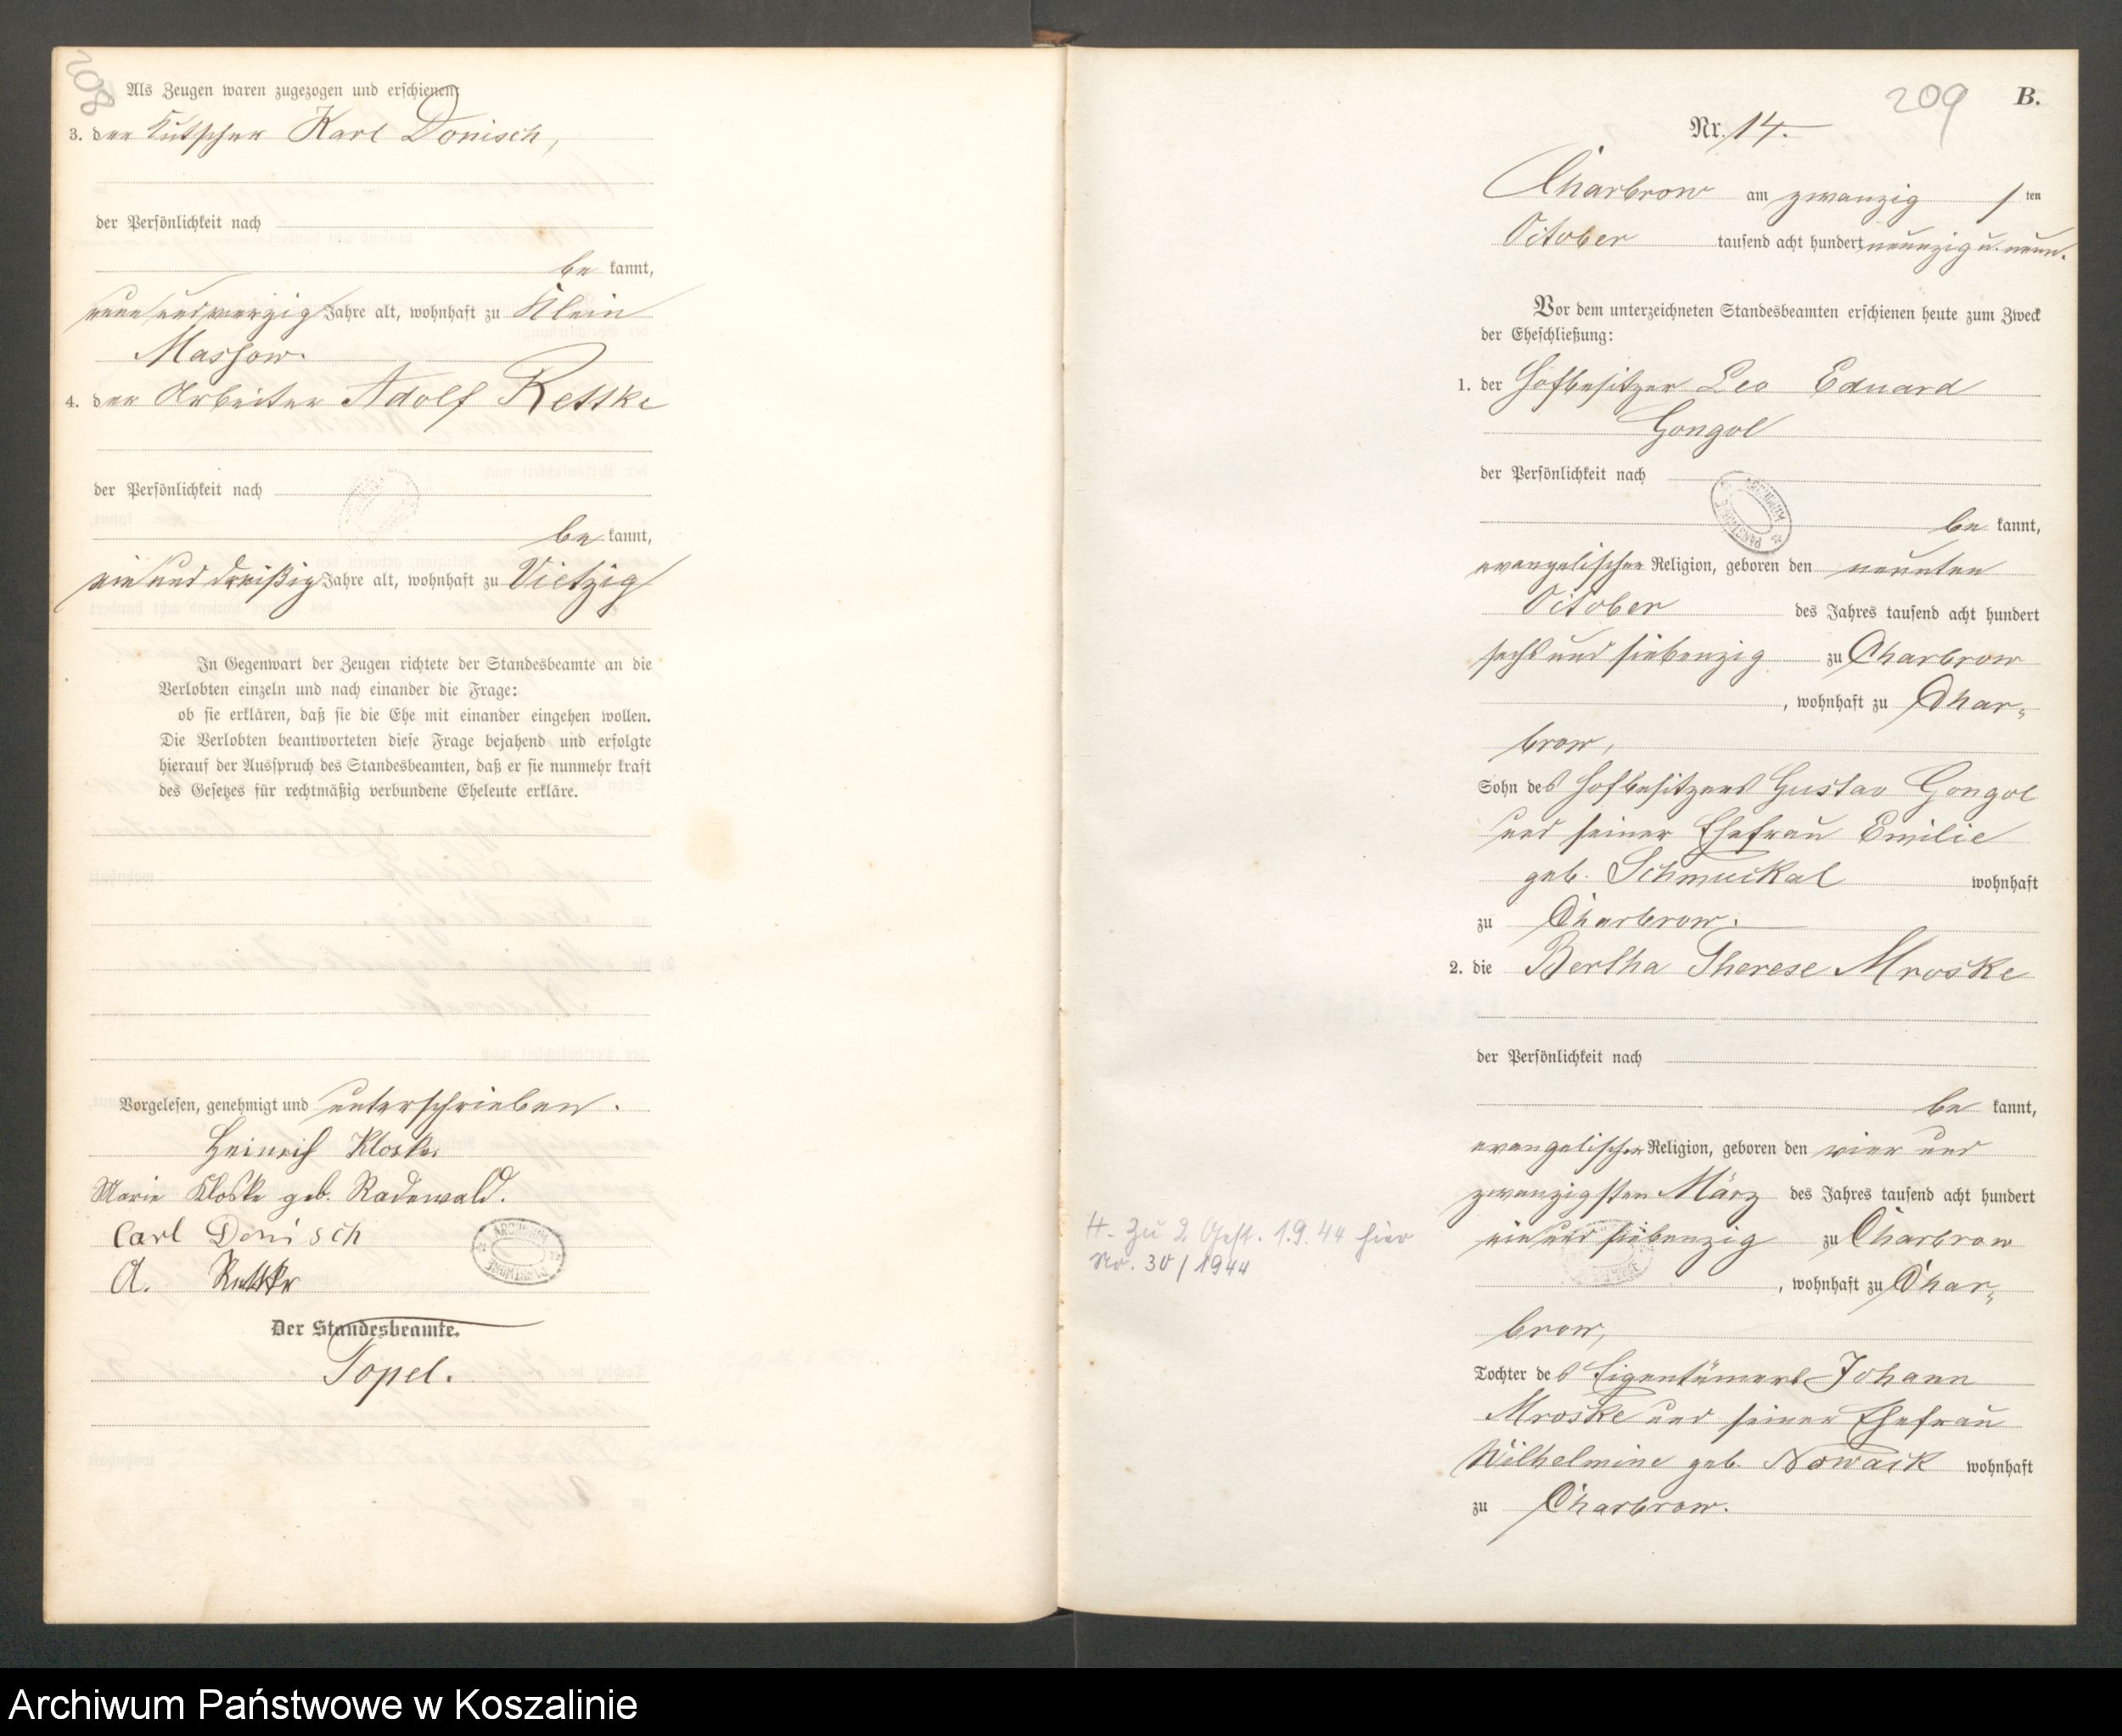 208
Als Zeugen waren zugezogen und erschienen:
3. der Kutscher Karl Donisch,
der Persönlichkeit nach
be kannt,
neun und vierzig Jahre alt, wohnhaft zu Klein
Massow.
4. der Arbeiter Adolf Rettke
der Persönlichkeit nach
be kannt,
ein und dreißig Jahre alt, wohnhaft zu Vietzig
In Gegenwart der Zeugen richtete der Standesbeamte an die
Verlobten einzeln und nach einander die Frage:
ob sie erklären, daß sie die Ehe mit einander eingehen wollen.
Die Verlobten beantworteten diese Frage bejahend und erfolgte
hierauf der Ausspruch des Standesbeamten, daß er sie nunmehr kraft
des Gesetzes für rechtmäßig verbundene Eheleute erkläre.
Vorgelesen, genehmigt und unterschrieben.
Heinrich Kloske
Marie Kloske geb. Radewald.
Carl Donisch
A. Rettke
ARCHIWUM PAŃSTWOWE
Der Standesbeamte.
Topel.
209 B.
Nr. 14.
Charbrow am zwanzig ten
October tausend acht hundert neunzig u. neun.
Vor dem unterzeichneten Standesbeamten erschienen heute zum Zweck
der Eheschließung:
1. der Hofbesitzer Leo Eduard
Gongol
der Persönlichkeit nach
ARCHIWUM PAŃSTWOWE
be kannt,
evangelischer Religion, geboren den neunten
October des Jahres tausend acht hundert
sechs und siebenzig zu Charbrow
, wohnhaft zu Char-
brow,
Sohn des Hofbesitzers Gustav Gongol
und seiner Ehefrau Emilie
geb. Schmuckal wohnhaft
zu Charbrow.
2. die Bertha Therese Mroske
der Persönlichkeit nach
be kannt,
evangelischer Religion, geboren den vier und
zwanzigsten März des Jahres tausend acht hundert
ein und siebenzig zu Charbrow
, wohnhaft zu Char-
brow,
Tochter des Eigentümers Johann
Mroske und seiner Ehefrau
Wilhelmine geb. Nowack wohnhaft
zu Charbrow.
H. zu 2 Gest. 1.9.44 hier
No. 30/1944
Archiwum Państwowe w Koszalinie